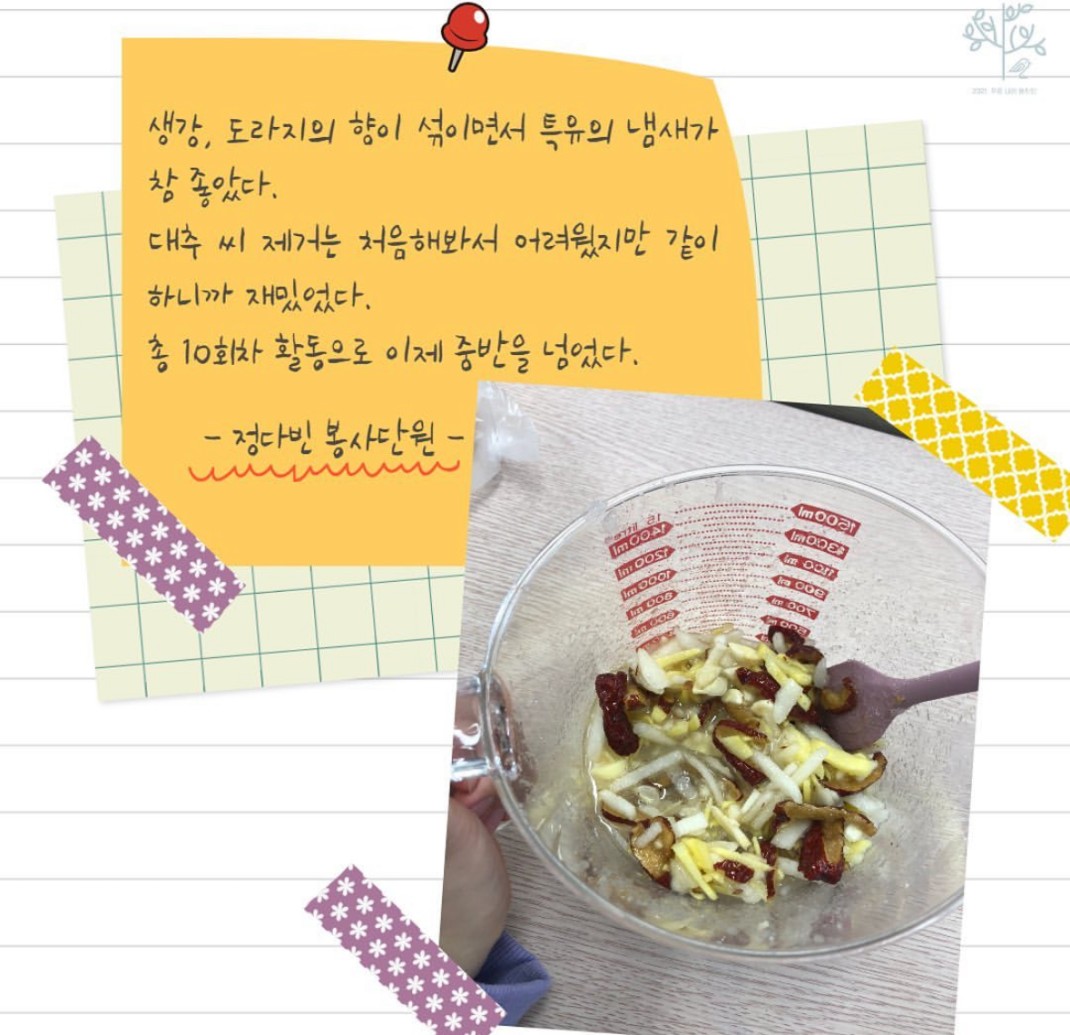 생강, 도라지의 향이 섞이면서 특유의 냄새가
참 좋았다.
대추 씨 제거는 처음해봐서 어려웠지만 같이
하니까 재밌었다.
총 10회차 활동으로 이제 중반을 넘었다.
- 정다빈 봉사단원 -
1500ml
1400ml
1300ml
1200ml
1100ml
1000ml
900ml
800ml
700ml
600ml